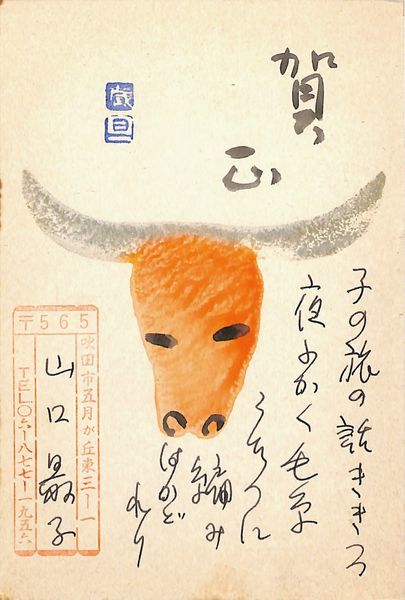 賀正
歳旦
子の旅の話ききつつ
夜ふかく毛糸
編み
はかど
れり
〒565
吹田市五月が丘東三ー一
山口最子
TEL〇六ー八七七ー一九五六